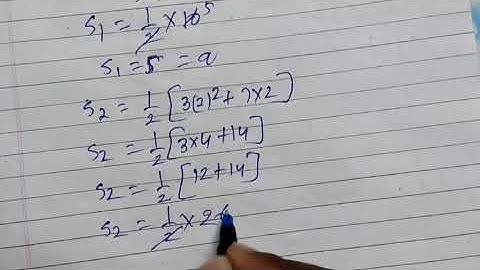 S₁ = 1/2 × 10 5
S₁ = 5 = a
S₂ = 1/2 [3(2)² + 7×2]
S₂ = 1/2 [3×4 + 14]
S₂ = 1/2 [12 + 14]
S₂ = 1/2 × 2